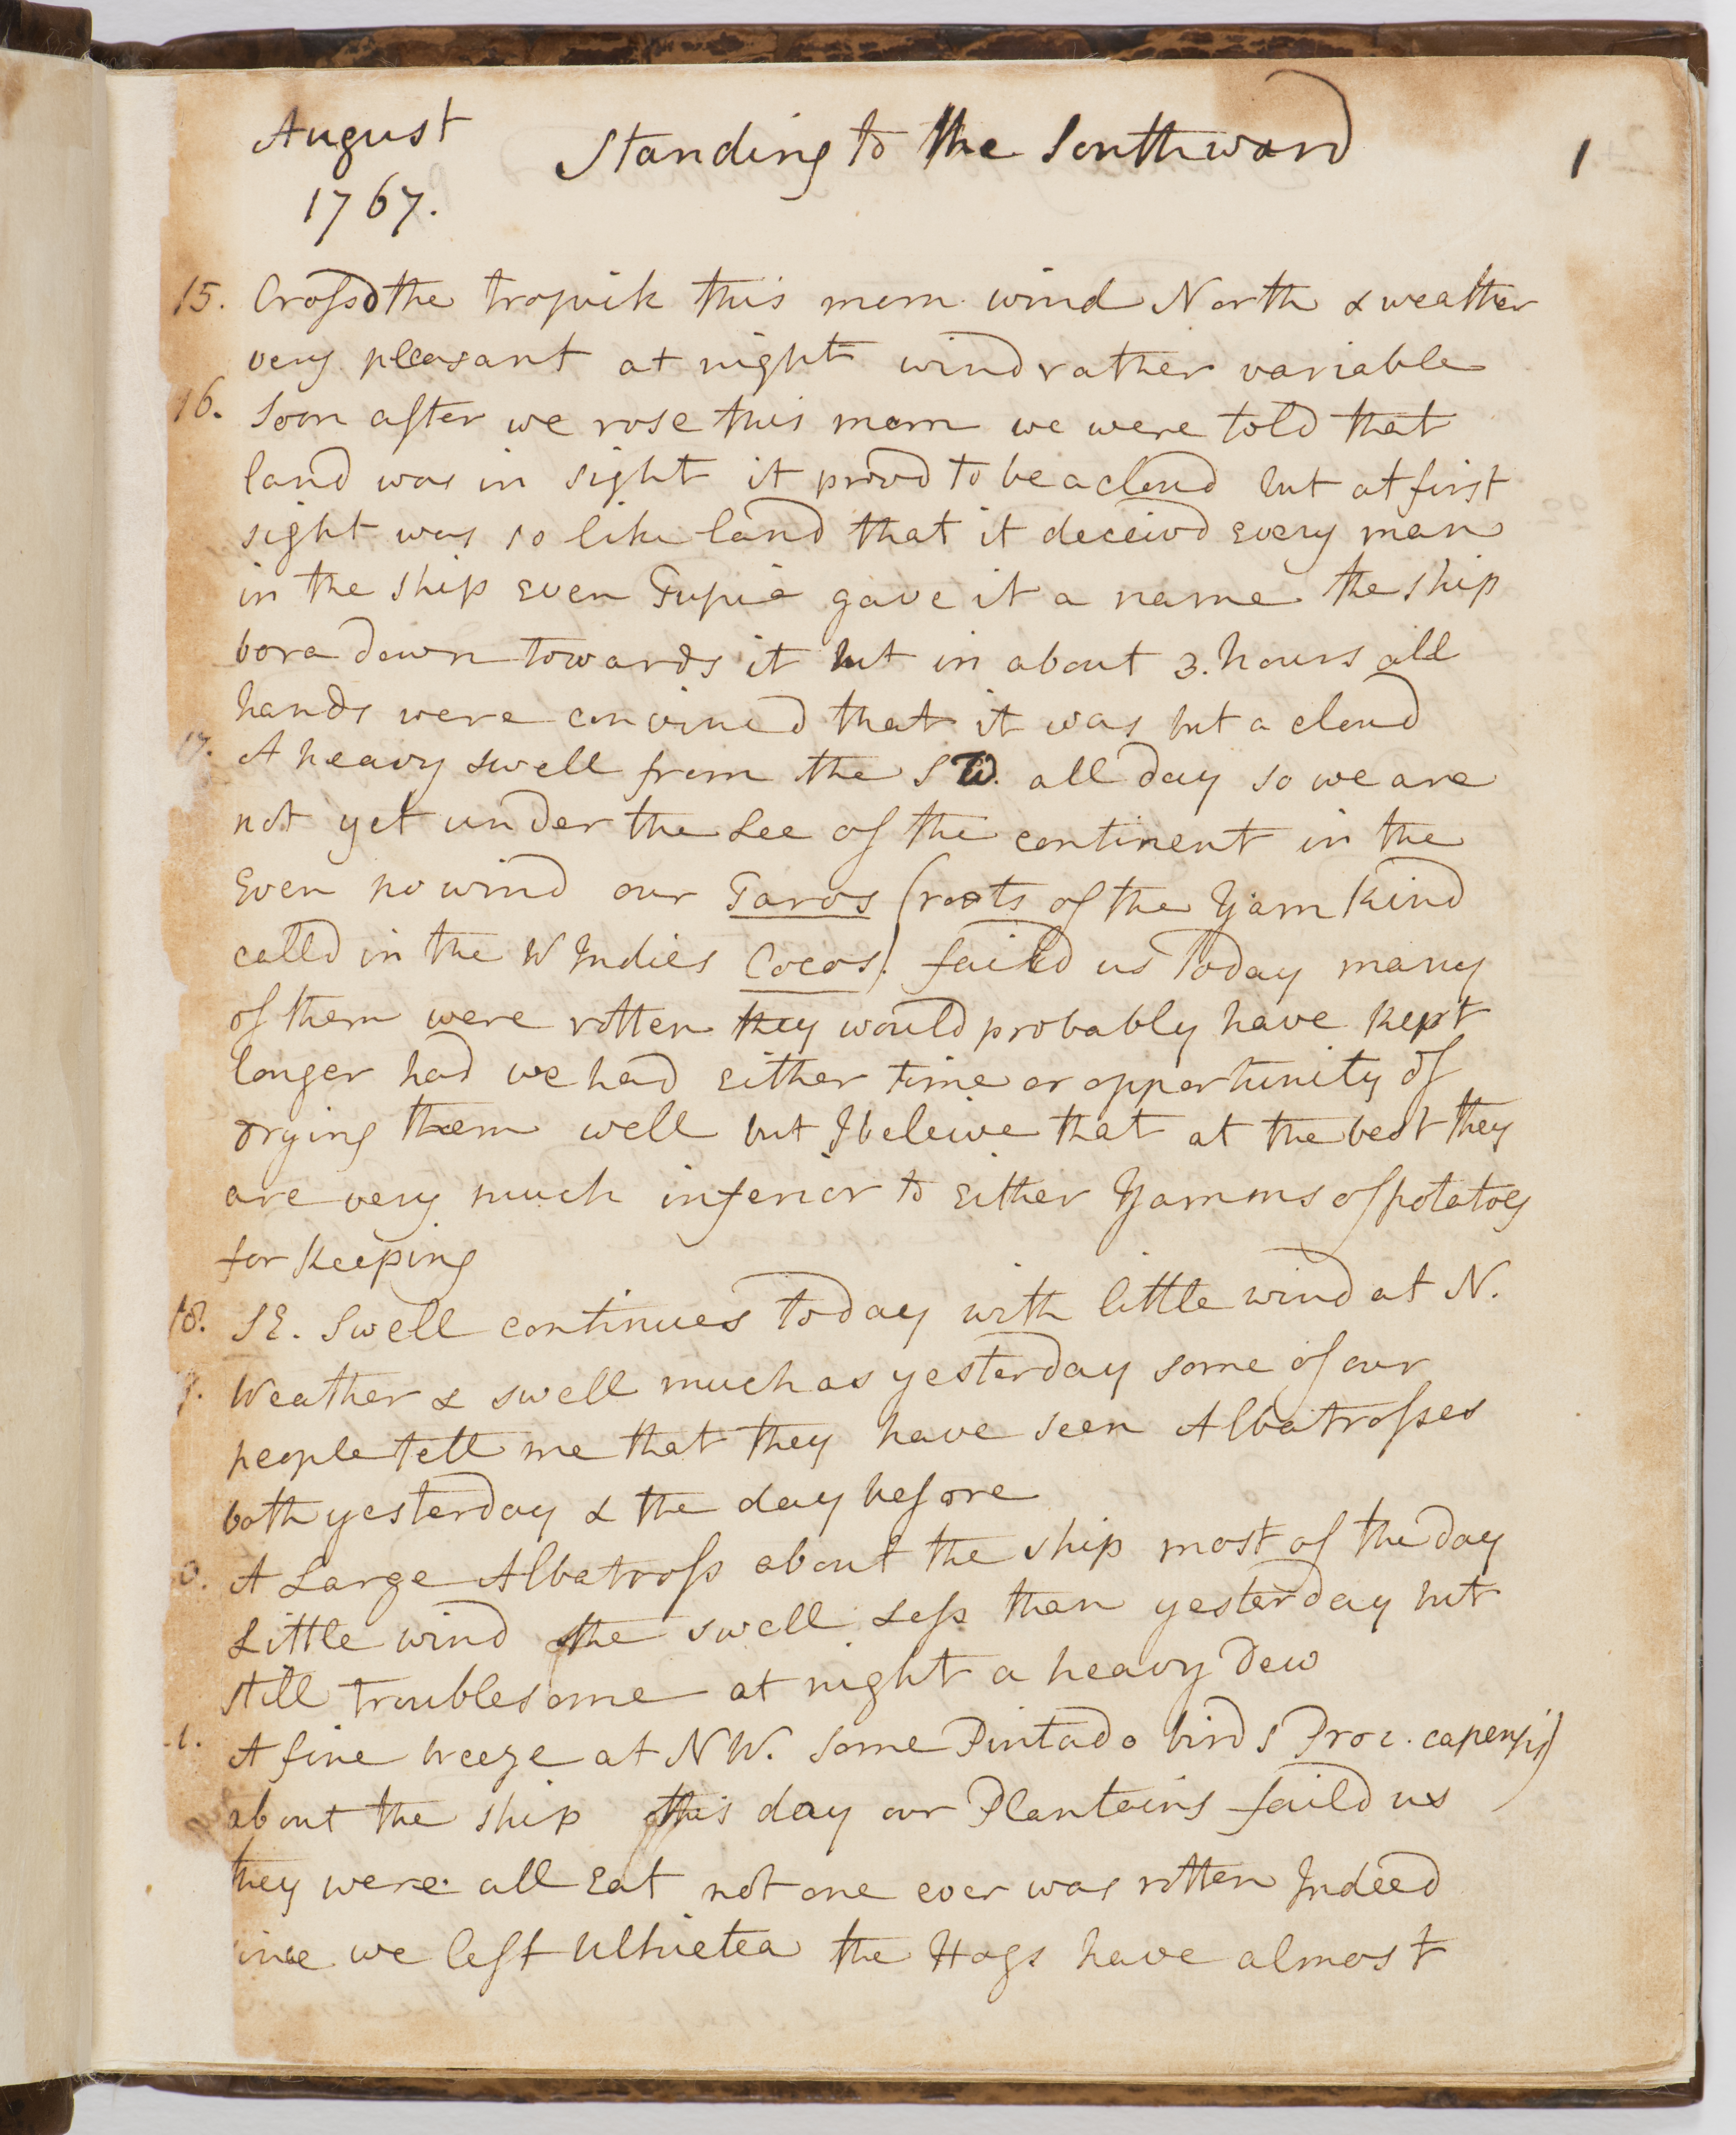 August Standing to the Southward 1
1767.
15. Crossd the tropick this morn wind North & weather
very pleasant at night wind rather variable
16. Soon after we rose this morn we were told that
land was in sight it provd to be a cloud but at first
sight was so like land that it deceivd every man
in the ship even Tupia gave it a name the ship
bore down towards it but in about 3. hours all
hands were convincd that it was but a cloud
17. A heavy swell from the SW. all day so we are
not yet under the Lee of the continent in the
Even no wind our Taros (roots of the Yam kind
calld in the W Indies Cocos). faild us today many
of them were rotten they would probably have kept
longer had we had either time or opportunity of
drying them well but I beleive that at the best they
are very much inferior to either Yamms of potatoes
for keeping
18. SE. Swell continues today with little wind at N.
9. Weather & swell much as yesterday some of our
people tell me that they have seen Albatrosses
both yesterday & the day before
0. A Large Albatross about the ship most of the day
Little wind the swell Less than yesterday but
still troublesome at night a heavy Dew
1. A fine breeze at NW. some Pintado birds Proc. capensis)
about the ship this day our Plantains faild us
they were all eat not one ever was rotten Indeed
since we left Ulhietea the Hogs have almost